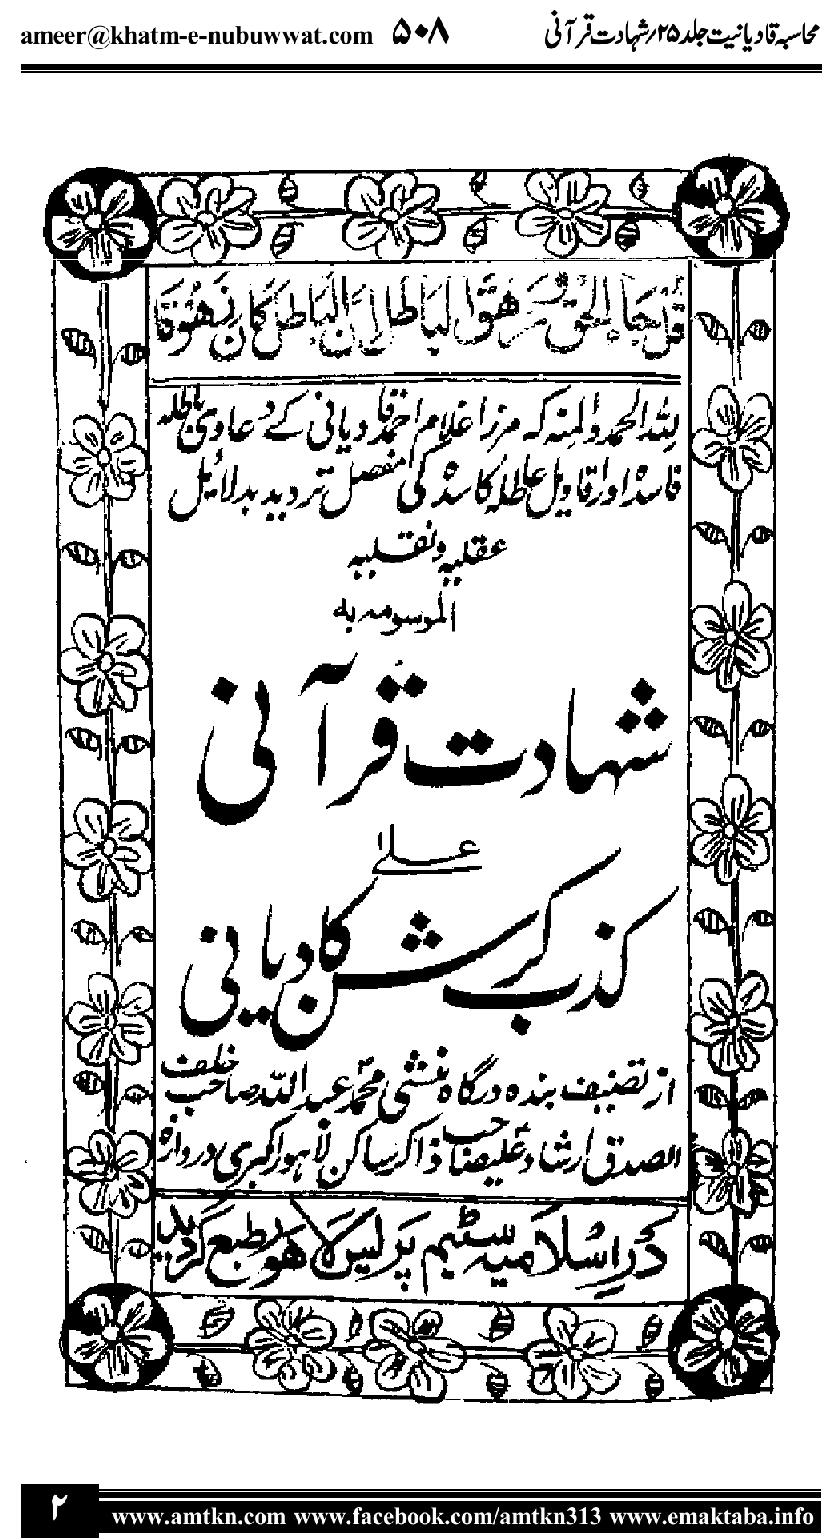 محاسبہ قادیانیت جلد ۲۵؍شہادت قرآنی ۵۰۸ ameer@khatm-e-nubuwwat.com
قل جاء الحق و زهق الباطل ان الباطل كان زهوقا
للہ الحمد والمنہ کہ مرزا غلام احمد قادیانی کے دعاوی باطلہ
فاسدہ اور اقاویل عاطلہ کاسدہ کی مفصل تردید بدلائیل
عقلیہ و نقلیہ
الموسومہ بہ
شہادت قرآنی
علی
کذب کرشن کادیانی
از تصنیف بندہ درگاہ منشی محمد عبداللہ صاحب خلف
الصدق ارشاد علیصاحب ذاکر ساکن لاہور اکبری دروازہ
در اسلامیہ سٹیم پریس لاہور طبع گردید
۲ www.amtkn.com www.facebook.com/amtkn313 www.emaktaba.info